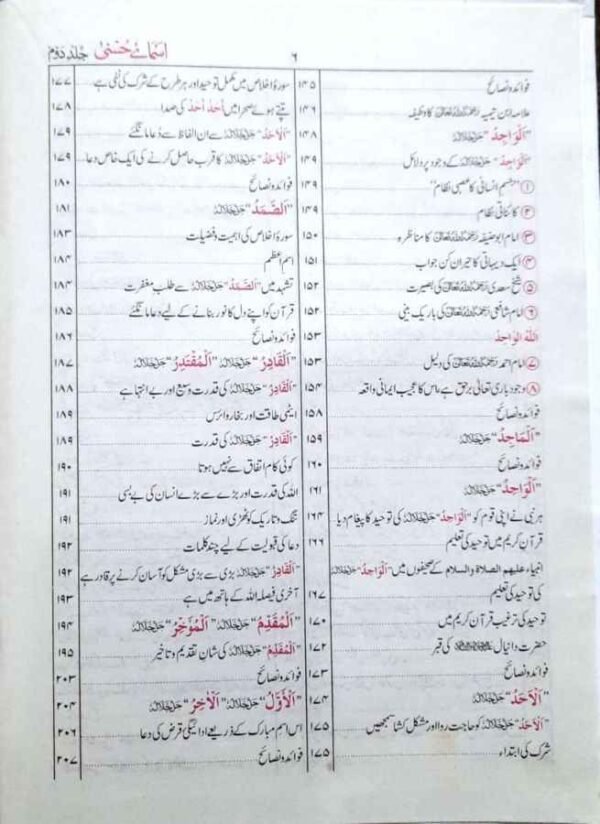 اسمائے حسنیٰ جلد دوم
۶
فوائد و نصائح ۱۴۵
علامہ ابن تیمیہ رحمۃ اللہ تعالیٰ کا وظیفہ ۱۴۶
"اَلْوَاحِدُ" جل جلالہ ۱۴۸
"اَلْوَاحِدُ" جل جلالہ کے وجود پر دلائل ۱۴۹
① "جسم انسانی کا عصبی نظام" ۱۴۹
② کائناتی نظام ۱۴۹
③ امام ابو حنیفہ رحمۃ اللہ تعالیٰ کا مناظرہ ۱۵۰
④ ایک دیہاتی کا حیران کن جواب ۱۵۱
⑤ شیخ سعدی رحمۃ اللہ تعالیٰ کی بصیرت ۱۵۲
⑥ امام شافعی رحمۃ اللہ تعالیٰ کی باریک بینی ۱۵۲
اللہ الواحد ۱۵۳
⑦ امام احمد رحمۃ اللہ تعالیٰ کی دلیل ۱۵۳
⑧ وجود باری تعالیٰ برحق ہے، اس کا عجیب ایمانی واقعہ ۱۵۴
فوائد و نصائح ۱۵۸
"اَلْمَاجِدُ" جل جلالہ ۱۵۹
فوائد و نصائح ۱۶۰
"اَلْوَاحِدُ" جل جلالہ ۱۶۱
ہر نبی نے اپنی قوم کو "اَلْوَاحِدُ" جل جلالہ کی توحید کا پیغام دیا ۱۶۴
قرآن کریم میں توحید کی تعلیم ۱۶۶
انبیاء علیہم الصلاۃ والسلام کے صحیفوں میں "اَلْوَاحِدُ" جل جلالہ
کی توحید کی تعلیم ۱۶۷
توحید کی ترغیب قرآن کریم میں ۱۷۰
حضرت دانیال کی قبر ۱۷۲
فوائد و نصائح ۱۷۳
"اَلْاَحَدُ" جل جلالہ ۱۷۴
"اَلْاَحَدُ" جل جلالہ کو حاجت روا اور مشکل کشا سمجھیں ۱۷۵
شرک کی ابتداء ۱۷۵
سورۂ اخلاص میں مکمل توحید اور ہر طرح کے شرک کی نفی ہے ۱۷۷
تپتے ہوئے صحرا میں اَحَدْ اَحَدْ کی صدا ۱۷۸
"اَلْاَحَدُ" جل جلالہ سے ان الفاظ سے دُعا مانگئے ۱۷۹
"اَلْاَحَدُ" جل جلالہ کا قرب حاصل کرنے کی ایک خاص دعا ۱۷۹
فوائد و نصائح ۱۸۰
"اَلصَّمَدُ" جل جلالہ ۱۸۱
سورۂ اخلاص کی اہمیت و فضیلت ۱۸۳
اسم اعظم ۱۸۴
تشہد میں "اَلصَّمَدُ" جل جلالہ سے طلب مغفرت ۱۸۴
قرآن کو اپنے دل کا نور بنانے کے لیے دعا مانگئے ۱۸۵
فوائد و نصائح ۱۸۶
"اَلْقَادِرُ" جل جلالہ "اَلْمُقْتَدِرُ" جل جلالہ ۱۸۷
"اَلْقَادِرُ" جل جلالہ کی قدرت وسیع اور بے انتہا ہے ۱۸۸
ایٹمی طاقت اور بخار وائرس ۱۸۹
"اَلْقَادِرُ" جل جلالہ کی قدرت ۱۸۹
کوئی کام اتفاق سے نہیں ہوتا ۱۹۰
اللہ کی قدرت اور بڑے سے بڑے انسان کی بے بسی ۱۹۱
تنگ و تاریک کوٹھڑی اور نماز ۱۹۱
دعا کی قبولیت کے لیے چند کلمات ۱۹۲
"اَلْقَادِرُ" جل جلالہ بڑی سے بڑی مشکل کو آسان کرنے پر قادر ہے ۱۹۲
آخری فیصلہ اللہ کے ہاتھ میں ہے ۱۹۳
"اَلْمُقَدِّمُ" جل جلالہ "اَلْمُؤَخِّرُ" جل جلالہ ۱۹۴
"اَلْمُقَدِّمُ" جل جلالہ کی شان تقدیم و تاخیر ۱۹۵
فوائد و نصائح ۲۰۳
"اَلْاَوَّلُ" جل جلالہ "اَلْاٰخِرُ" جل جلالہ ۲۰۴
اس اسم مبارک کے ذریعے ادائیگی قرض کی دعا ۲۰۶
فوائد و نصائح ۲۰۷